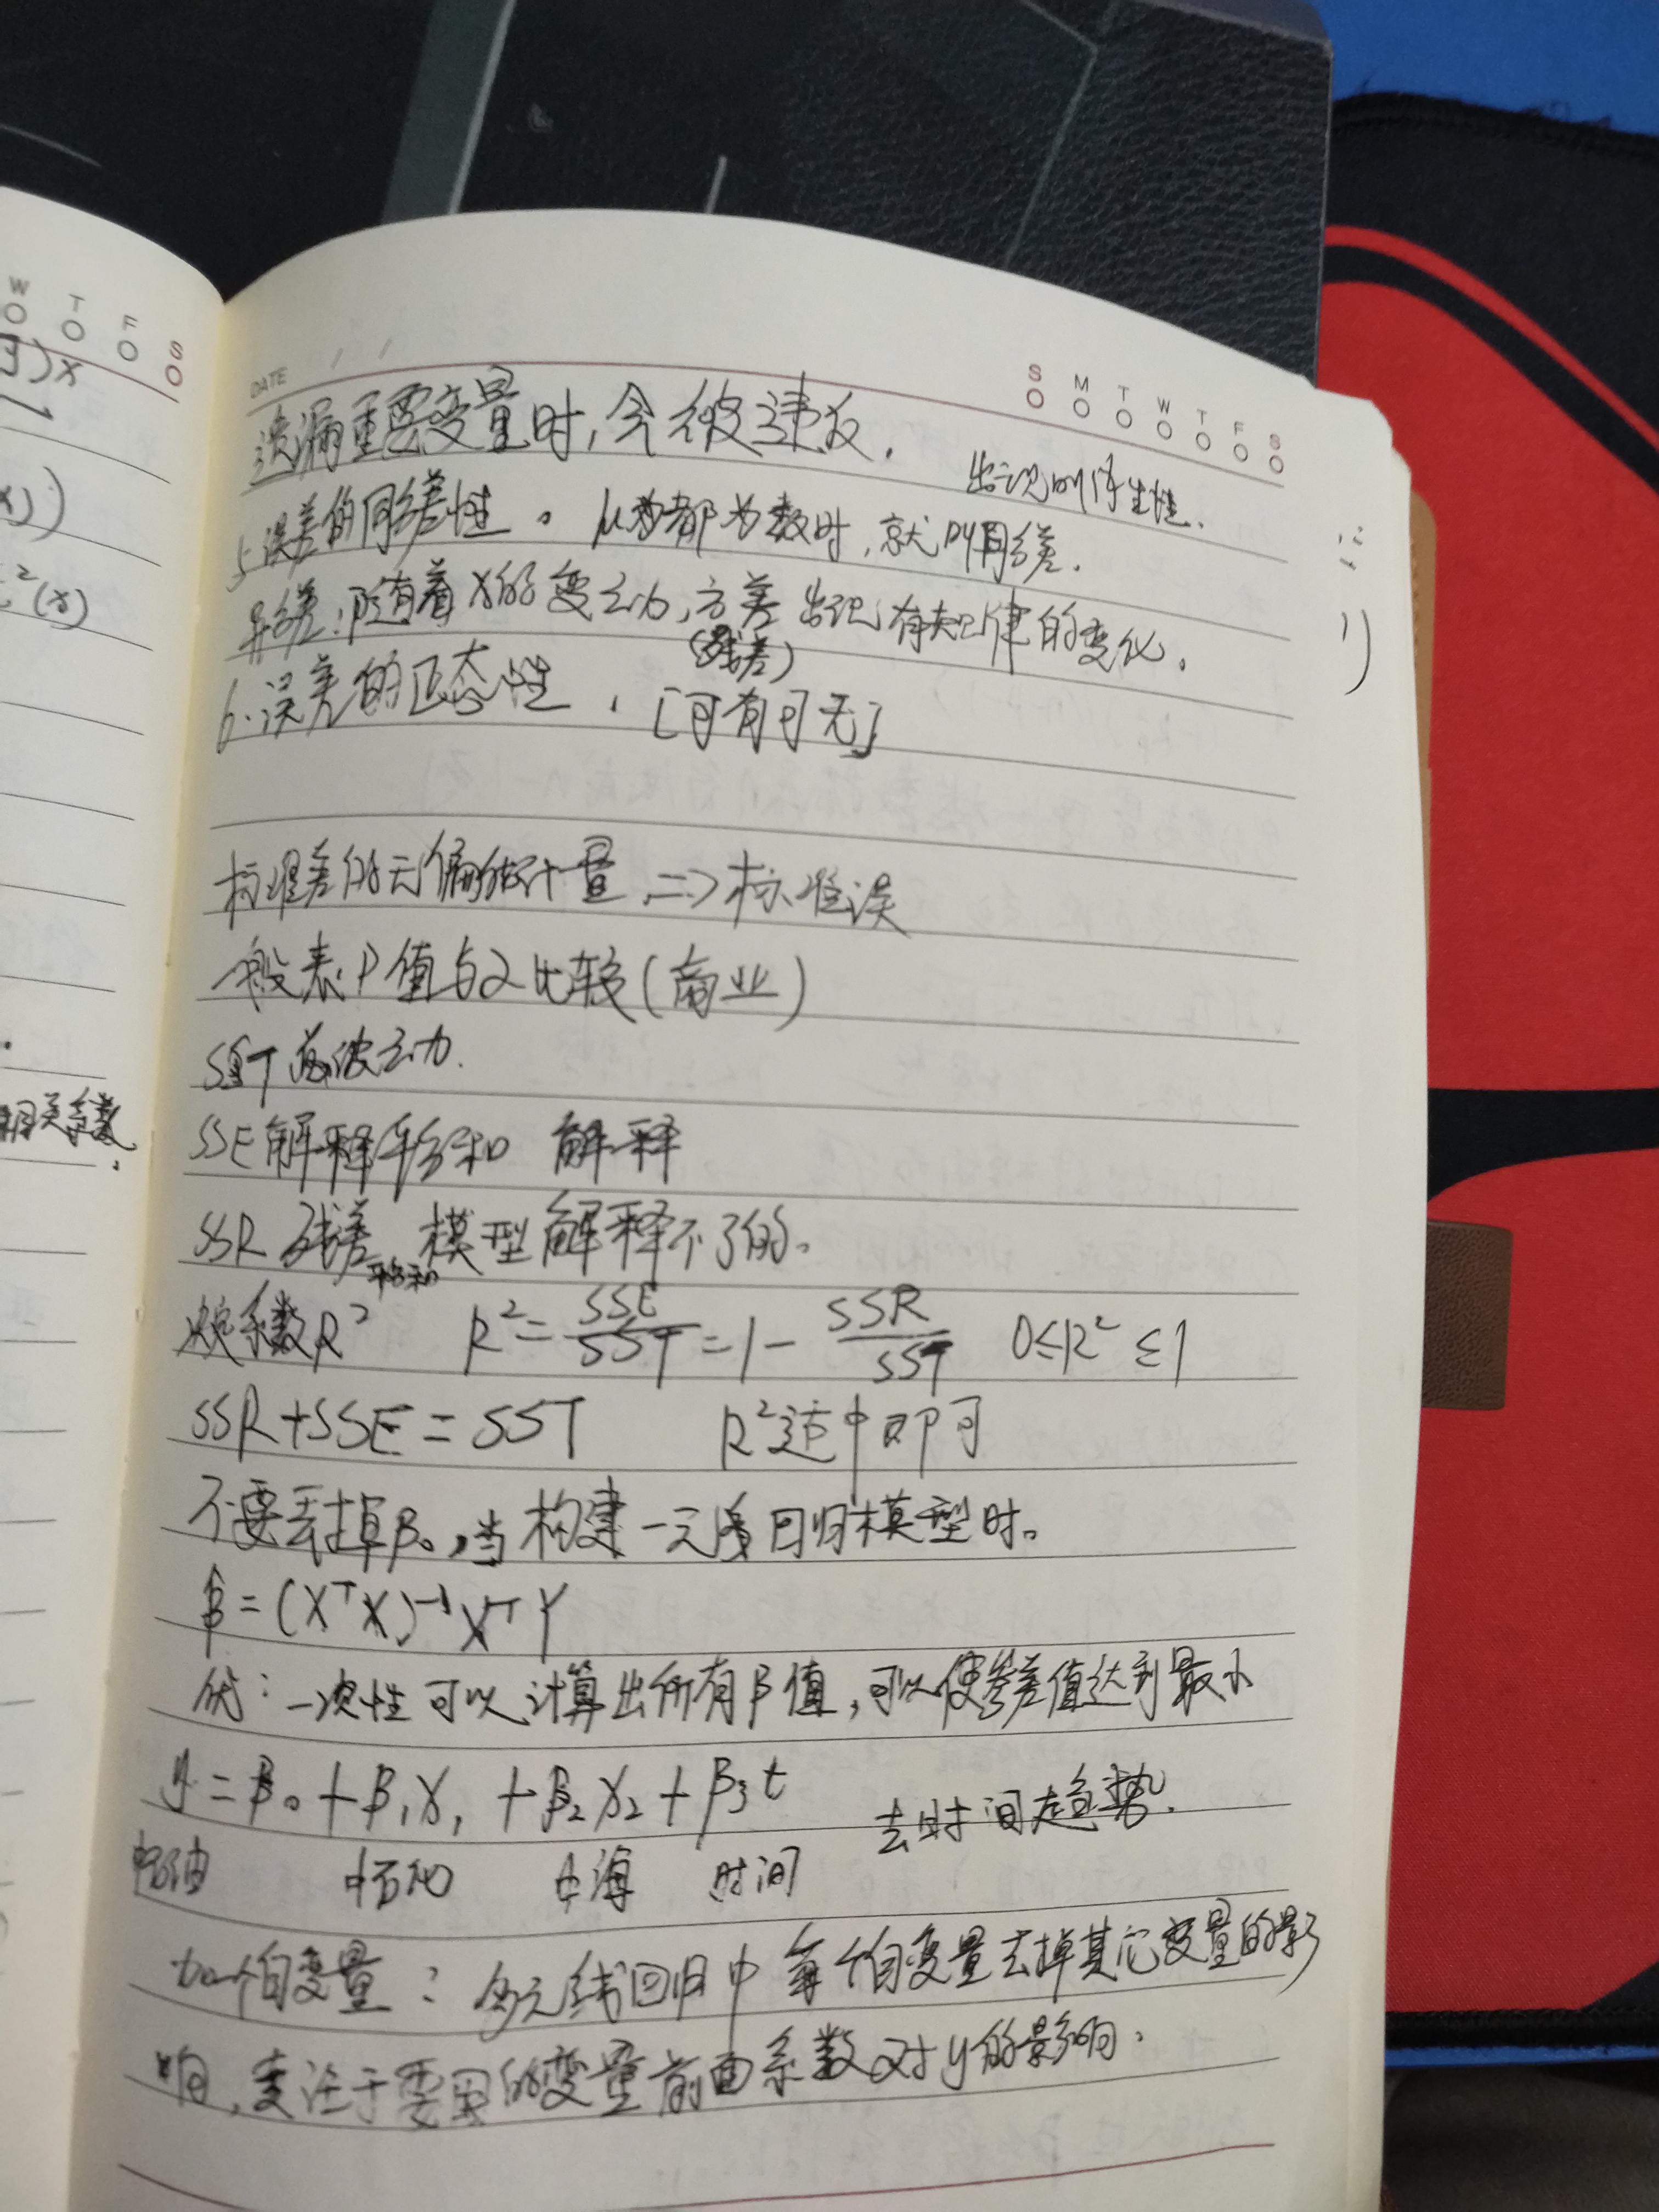 W T F S
DATE / /
S M T W T F S
遗漏重要变量时,会被违反.
出现内生性.
5.误差的同方差性。μ方差都为数时,就叫同方差.
异方差:随着x的变动,方差出现有规律的变化.
(残差)
6.误差的正态性.[可有可无]
标准差的无偏估计量=>标准误
一般表P值与α比较(商业)
SST 总波动.
SSE解释平方和 解释
SSR 残差平方和 模型解释不了的。
决定系数R² R²=SSE/SST=1-SSR/SST 0≤R²≤1
SSR+SSE=SST R²适中即可
不要丢掉β₀,当构建一元回归模型时。
β̂=(XᵀX)⁻¹XᵀY
优:一次性可以计算出所有β值,可以使参差值达到最小
y=β₀+β₁x₁+β₂x₂+β₃t 去时间趋势.
中石油 中石化 中海 时间
加一个自变量:多元线回归中每个自变量去掉其它变量的影
响,专注于要用的变量前面系数对y的影响.
相关系数.